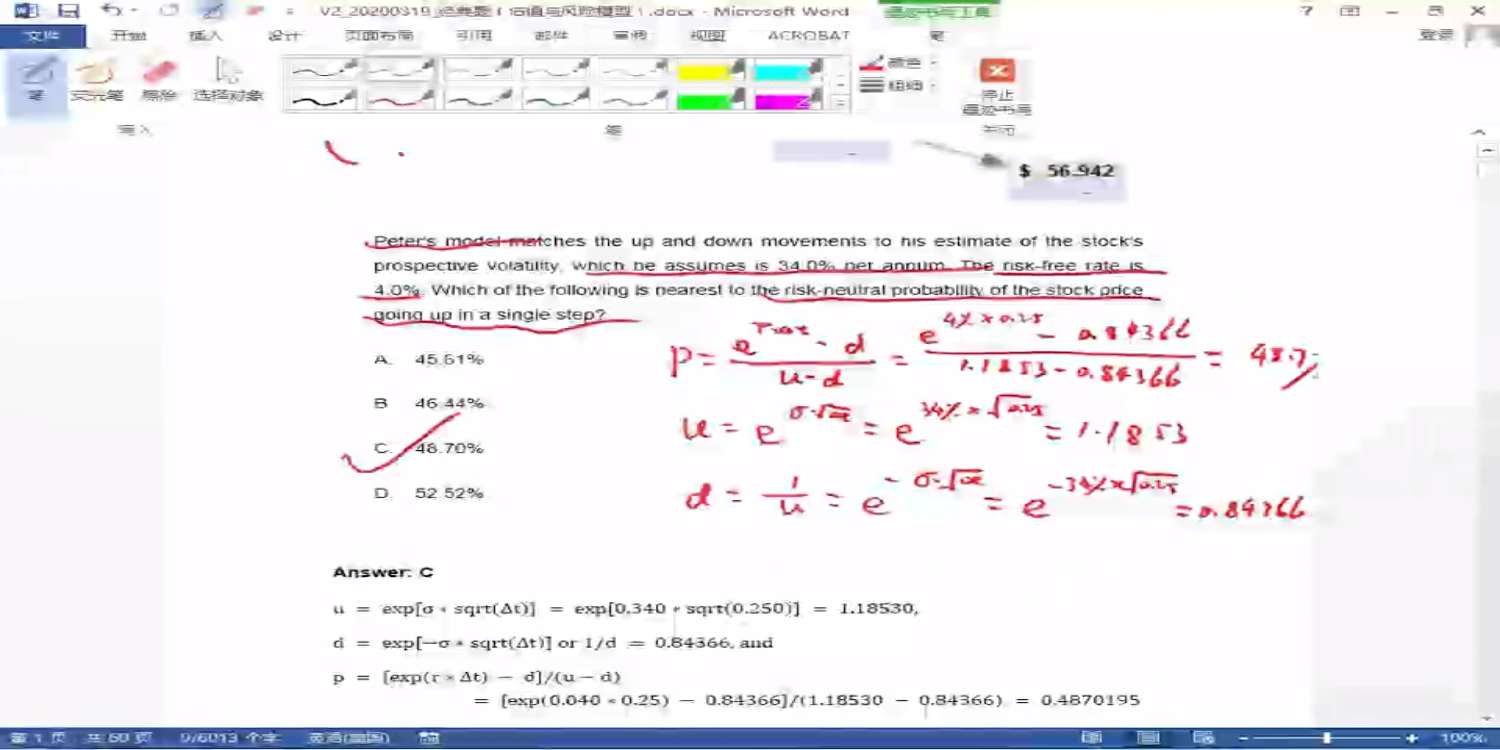 V2_20200319_经典题（估值与风险模型）.docx - Microsoft Word
墨迹书写工具
文件 开始 插入 设计 页面布局 引用 邮件 审阅 视图 ACROBAT 笔 登录
笔 荧光笔 擦除 选择对象 颜色 粗细 停止墨迹书写
写入 笔 关闭
$ 56.942
Peter's model matches the up and down movements to his estimate of the stock's
prospective volatility, which he assumes is 34.0% per annum. The risk-free rate is
4.0%. Which of the following is nearest to the risk-neutral probability of the stock price
going up in a single step?
A. 45.61%
B 46.44%
C. 48.70%
D. 52.52%
P = e^{r·Δt} - d / u - d = e^{4% × 0.25} - 0.84366 / 1.1853 - 0.84366 = 48.7%
u = e^{σ·√Δt} = e^{34% × √0.25} = 1.1853
d = 1/u = e^{-σ·√Δt} = e^{-34% × √0.25} = 0.84366
Answer: C
u = exp[σ * sqrt(Δt)] = exp[0.340 * sqrt(0.250)] = 1.18530,
d = exp[−σ * sqrt(Δt)] or 1/d = 0.84366, and
p = [exp(r * Δt) − d]/(u − d)
= [exp(0.040 * 0.25) − 0.84366]/(1.18530 − 0.84366) = 0.4870195
第 1 页 共 60 页 9/6013 个字 英语(美国) 100%